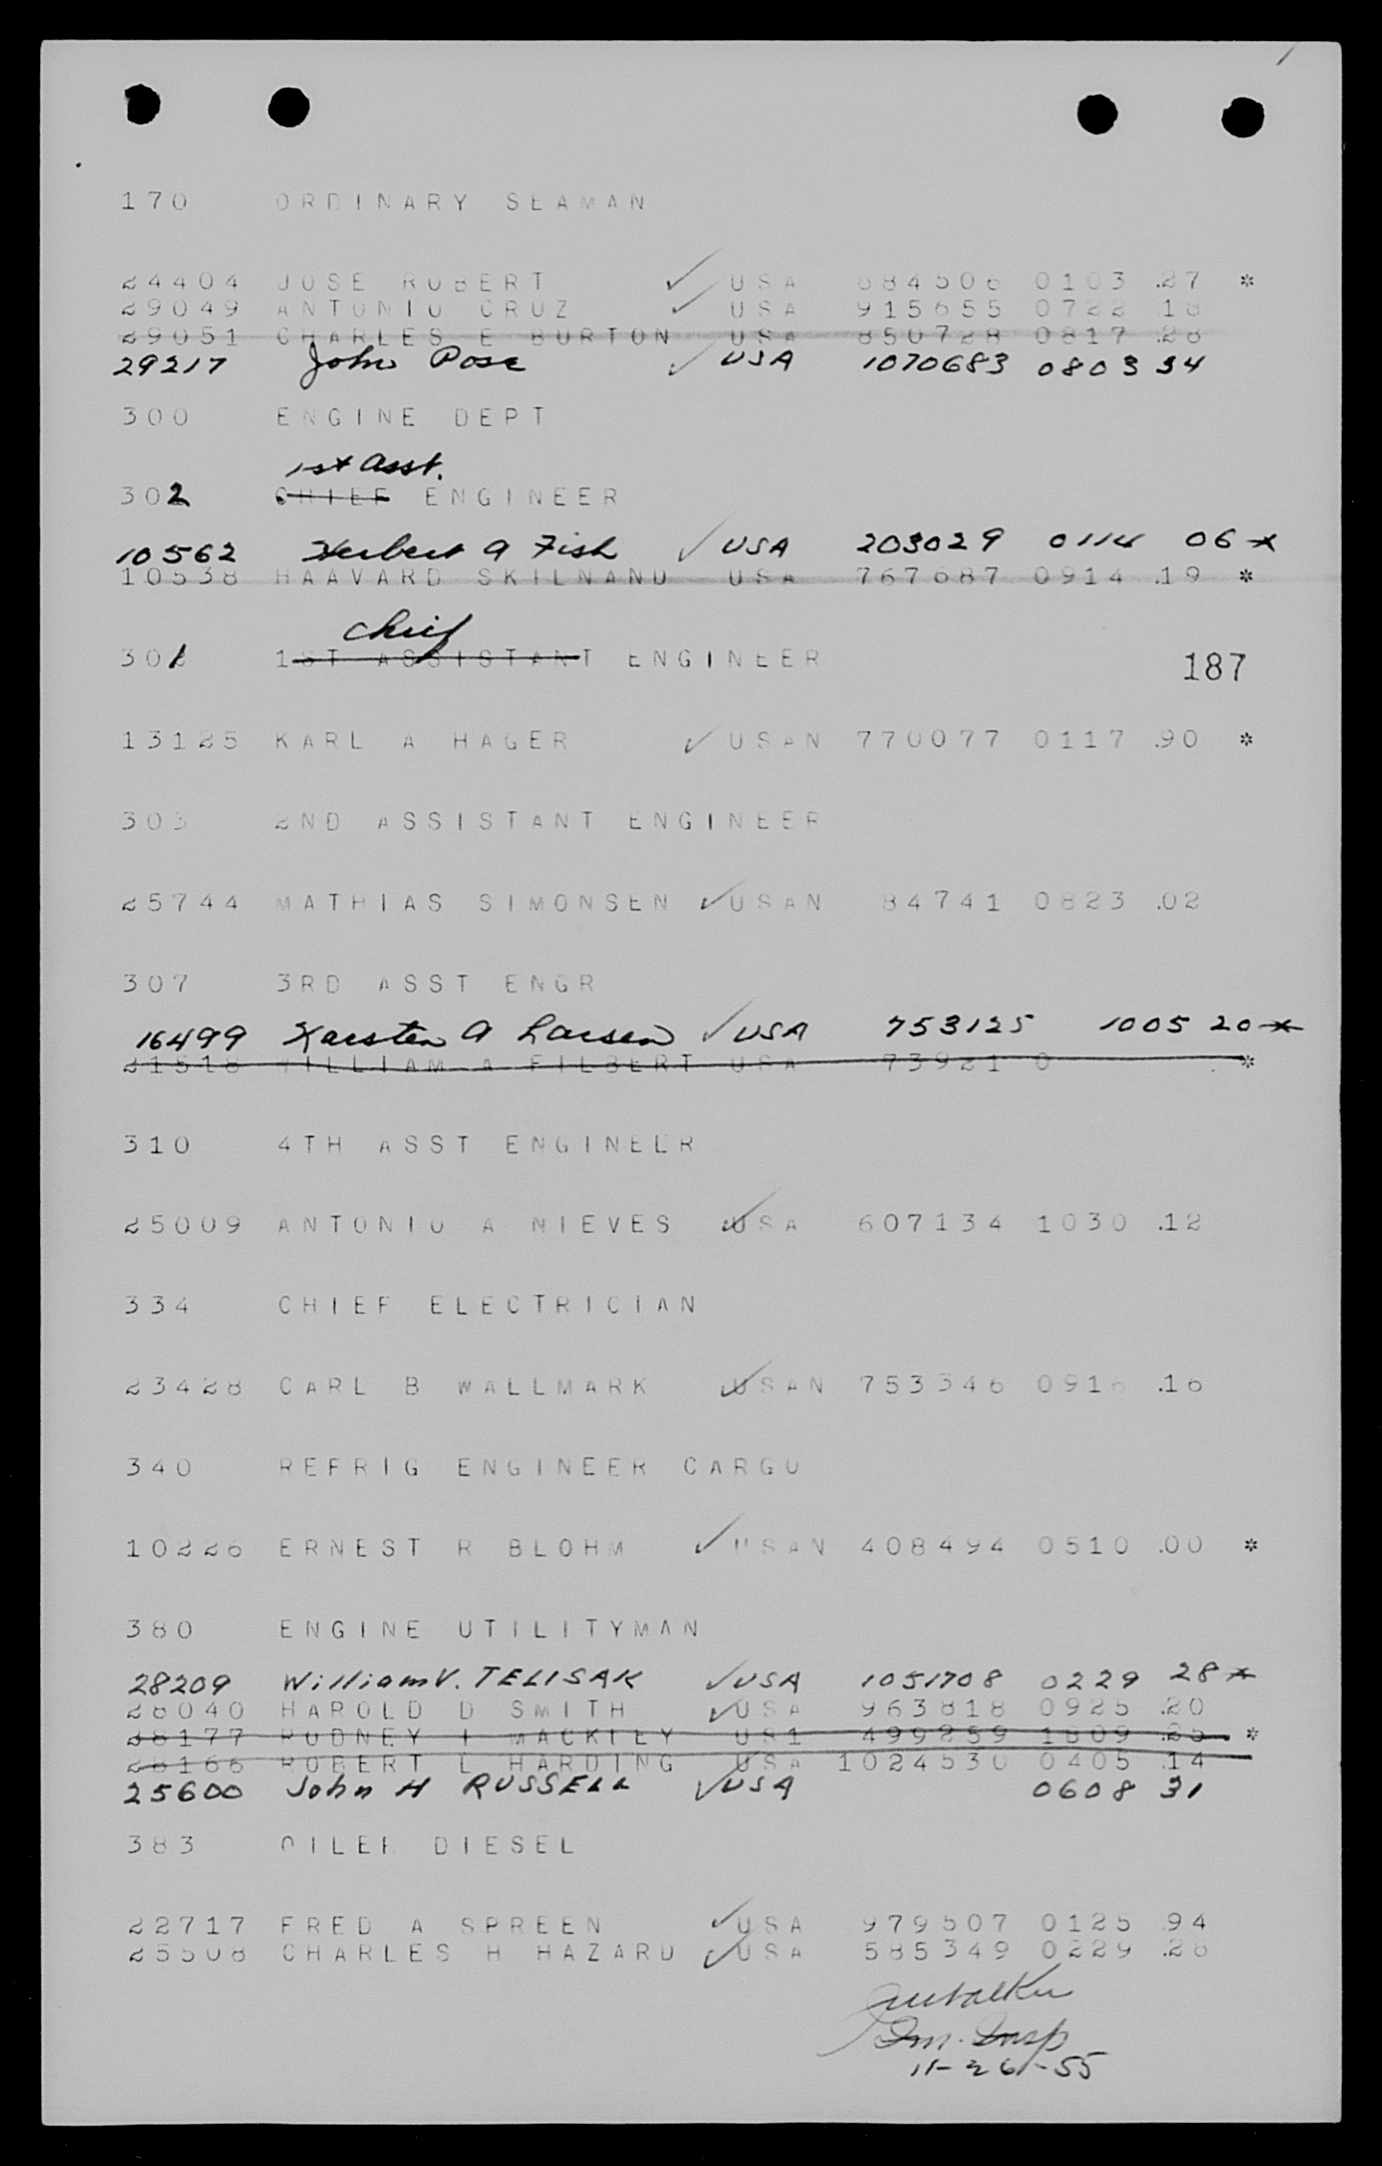 170 ORDINARY SEAMAN
24404 JOSE ROBERT ✓ USA 684506 0103 .27 *
29049 ANTONIO CRUZ ✓ USA 915655 0722 18
29051 CHARLES E BURTON USA 850728 0817 .28
29217 John Pose ✓ USA 1070683 0803 34
300 ENGINE DEPT
1st Asst.
302 CHIEF ENGINEER
10562 Herbert A Fish ✓ USA 203029 0114 06 *
10538 HAAVARD SKILNAND USA 767687 0914 .19 *
Chief
301 1ST ASSISTANT ENGINEER
187
13125 KARL A HAGER ✓ USAN 770077 0117 .90 *
303 2ND ASSISTANT ENGINEER
25744 MATHIAS SIMONSEN ✓ USAN 84741 0823 .02
307 3RD ASST ENGR
16499 Karsten A Larsen ✓ USA 753125 1005 20 *
21518 WILLIAM A FILBERT USA 73921 0 . *
310 4TH ASST ENGINEER
25009 ANTONIO A NIEVES ✓ USA 607134 1030 .12
334 CHIEF ELECTRICIAN
23428 CARL B WALLMARK ✓ USAN 753346 0916 .16
340 REFRIG ENGINEER CARGO
10226 ERNEST R BLOHM ✓ USAN 408494 0510 .00 *
380 ENGINE UTILITYMAN
28209 William V. TELISAK ✓ USA 1051708 0229 28 *
28040 HAROLD D SMITH ✓ USA 963818 0925 .20
28177 RODNEY I MACKLEY US1 499259 1809 .25 *
28166 ROBERT L HARDING USA 1024530 0405 .14
25600 John H RUSSELL ✓ USA 0608 31
383 OILER DIESEL
22717 FRED A SPREEN ✓ USA 979507 0125 94
25508 CHARLES H HAZARD ✓ USA 585349 0229 .28
Walker
Im. Insp
11-26-55